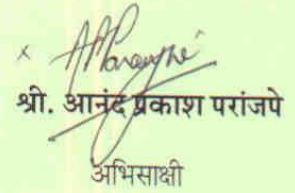 श्री. आनंद प्रकाश परांजपे
अभिसाक्षी